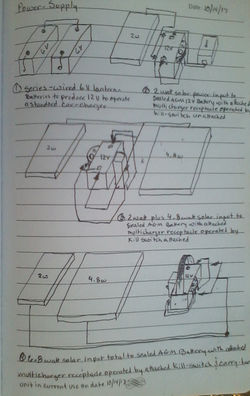 Power-Supply
Date: 10/14/17
6V
6V
2W
12V
① series-wired 6V lantern
Batteries to produce 12V to operate
a standard car-charger
② 2 watt solar power input to
Sealed AGM 12V Battery with attached
multicharger receptacle operated by
kill-switch unattached
2W
12V
4.8W
③ 2 watt plus 4.8 watt solar input to
Sealed AGM Battery with attached
multicharger receptacle operated by
Kill switch attached
2W
4.8W
12V
6.8 watt solar input total to sealed AGM Battery with attached
multicharger receptacle operated by attached Kill-switch & carry-
unit in current use on date 10/14/17